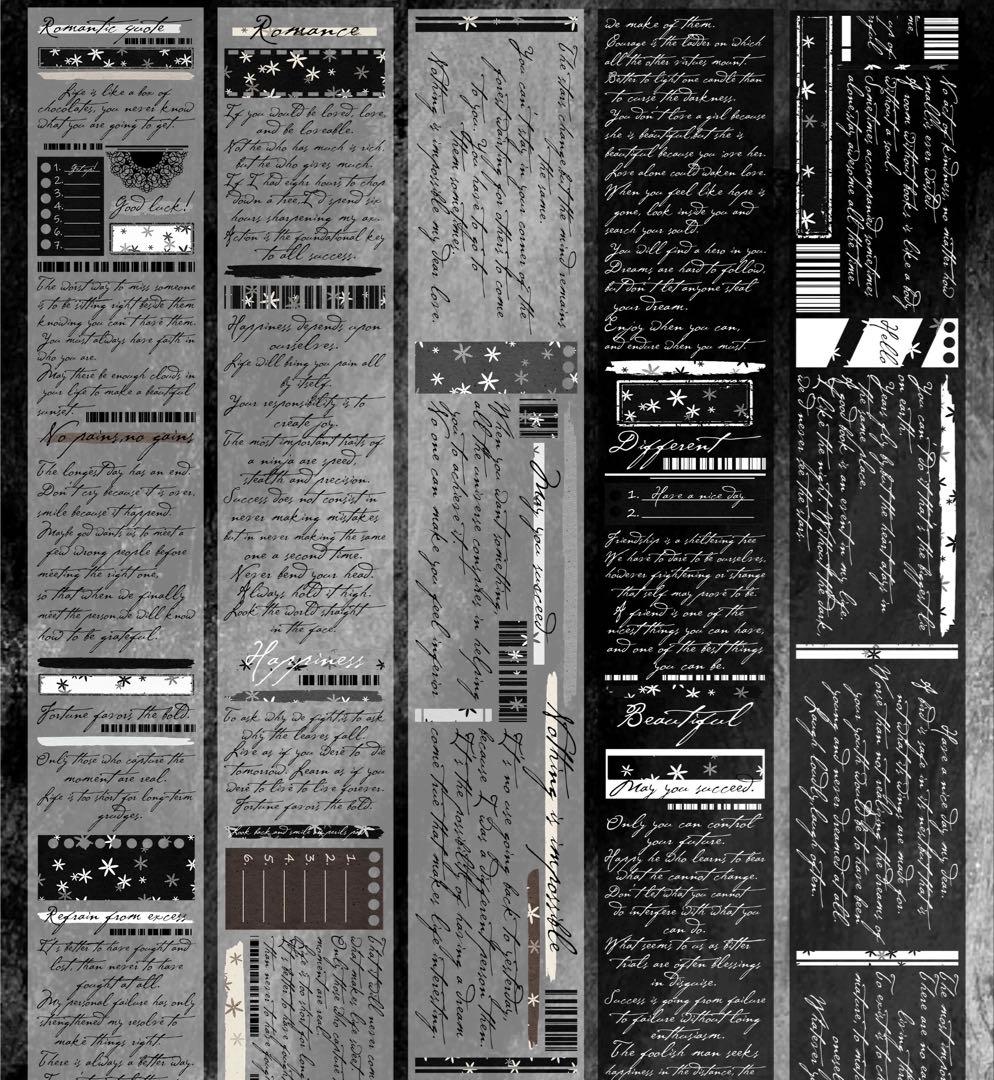 Romantic quote
Life is like a box of
chocolates, you never know
what you are going to get.
1. Get up!
2.
3.
4.
5.
6.
7.
Good luck!
The worst way to miss someone
is to be sitting right beside them
knowing you can't have them.
You must always have faith in
who you are.
May there be enough clouds in
your life to make a beautiful
sunset.
No pains,no gains
The longest day has an end.
Don't cry because it is over,
smile because it happend.
Maybe god wants us to meet a
few wrong people before
meeting the right one,
so that when we finally
meet the person,we will know
how to be grateful.
Fortune favors the bold.
Only those who capture the
moment are real.
Life is too short for long-term
grudges.
Refrain from excess.
It's better to have fought and
lost, than never to have
fought at all.
My personal failure has only
strengthened my resolve to
make things right.
There is always a better way.
Romance
If you would be loved, love,
and be loveable.
Not he who has much is rich,
but he who gives much.
If I had eight hours to chop
down a tree, I'd spend six
hours sharpening my axe.
Action is the foundational key
to all success.
Happiness depends upon
ourselves.
Life will bring you pain all
by itself.
Your responsibility is to
create joy.
The most important traits of
a ninja are speed,
stealth and precision.
Success does not consist in
never making mistakes
but in never making the same
one a second time.
Never bend your head.
Always hold it high.
Look the world straight
in the face.
Happiness
To ask why we fight,is to ask
why the leaves fall.
Live as if you were to die
tomorrow. Learn as if you
were to live to live forever.
Fortune favors the bold.
1
2
3
4
5
6
That it will never come
what makes life sweet
Only those who capture
moment are real.
Life is too short for long
The stars change,but the mind remains
the same.
You can't stay in your corner of the
forest waiting for others to come
to you. You have to go to
them sometimes.
Nothing is impossible my dear love.
May you succeed.
When you want something,
all the universe conspires in helping
you to achieve it.
No one can make you feel inferior
Nothing is impossible
It's no use going back to yesterday,
because I was a different person then.
It's the possibility of having a dream
come true that makes life interesting
we make of them.
Courage is the ladder on which
all the other virtues mount.
Better to light one candle than
to curse the darkness.
You don't love a girl because
she is beautiful,but she is
beautiful because you love her.
Love alone could waken love.
When you feel like hope is
gone, look inside you and
search your sould.
You will find a hero in you.
Dreams are hard to follow,
but don't let anyone steal
your dream.
Enjoy when you can,
and endure when you must.
Different
1. Have a nice day
2.
Friendship is a sheltering tree
We have to dare to be ourselves,
however frightening or strange
that self may prove to be.
A friend is one of the
nicest things you can have,
and one of the best things
you can be.
Beautiful
May you succeed.
Only you can control
your future.
Happy he who learns to bear
what he cannot change.
Don't let what you cannot
do interfere with what you
can do.
What seems to us as bitter
trials are often blessings
in disguise.
Success is going from failure
to failure without losing
enthusiasm.
The foolish man seeks
happiness in the distance, the
me.
No act of kindness, no matter how
small,is ever wasted.
A room without books is like a body
without a soul.
Sometimes, accompanied sometimes,
almost
awesome all the time.
Hello
You can do that's the biggest lie
on earth.
Years go by, but the heart stays in
the same place.
A good book is an event in my life.
I like the night. Without the dark,
we'd never see the stars.
Have a nice day, my dear.
A bird is safe in its nest-but that is
not what its wings are made for.
Worse than not realizing the dreams of
your youth would be to have been
young and never dreamed at all.
Laugh loudly,laugh often,
The most
There are no
living
To exist is to
mature is to
Whatever